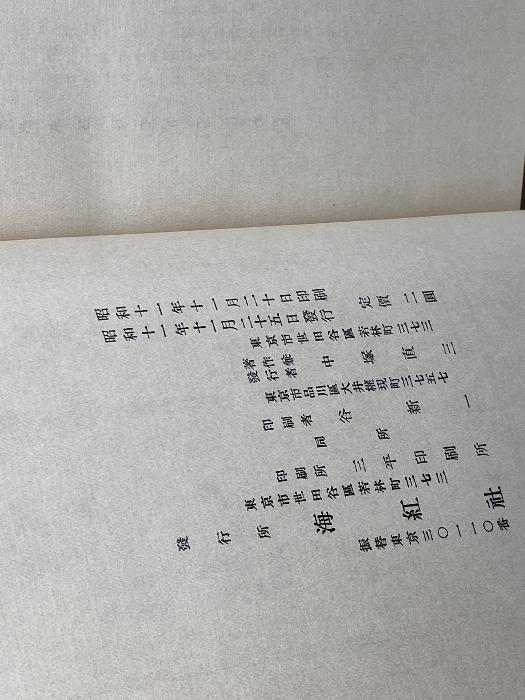 昭和十一年十一月二十日印刷
昭和十一年十一月二十五日發行
定價二圓
東京市世田谷區若林町三七三
著作兼
發行者 中塚直三
東京市品川區大井權現町三七五七
印刷者 谷新一
同所
印刷所 三平印刷所
東京市世田谷區若林町三七三
發行所 海紅社
振替東京三〇一一〇番